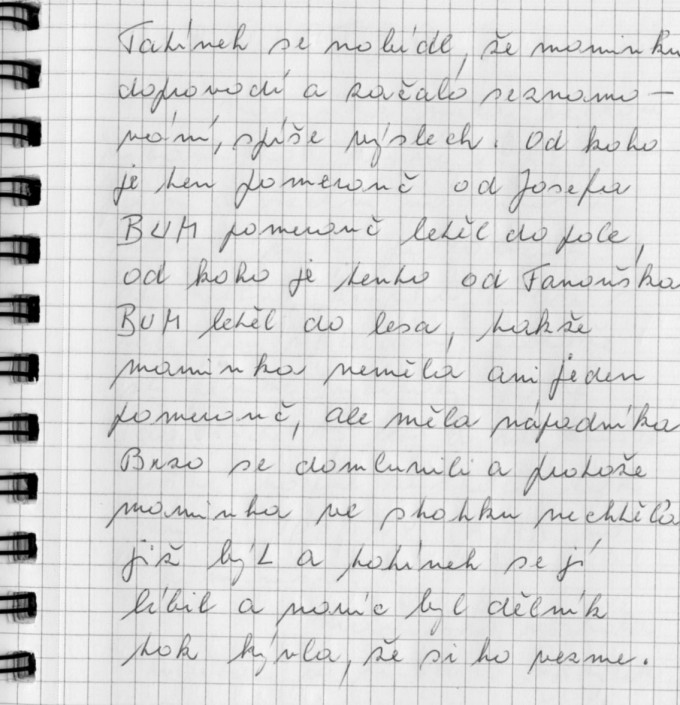 Tatínek se nabídl, že maminku
doprovodí a začalo seznamo-
vání, spíše výslech. Od koho
je ten pomeranč od Josefa
BUM pomeranč letěl do pole,
od koho je tento od Fanouška
BUM letěl do lesa, takže
maminka neměla ani jeden
pomeranč, ale měla nápadníka
Brzo se domluvili a protože
maminka ve statku nechtěla
již být a tatínek se jí
líbil a navíc byl dělník
tak kývla, že si ho vezme.